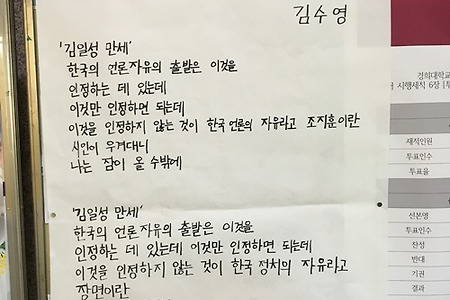 김수영
'김일성 만세'
한국의 언론자유의 출발은 이것을
인정하는 데 있는데
이것만 인정하면 되는데
이것을 인정하지 않는 것이 한국 언론의 자유라고 조지훈이란
시인이 우겨대니
나는 잠이 올 수밖에
'김일성 만세'
한국의 언론자유의 출발은 이것을
인정하는 데 있는데 이것만 인정하면 되는데
이것을 인정하지 않는 것이 한국 정치의 자유라고
장면이란
경희대학교
시행세칙 6장
재적인원
투표인수
투표율
선본명
투표인수
찬성
반대
기권
결과